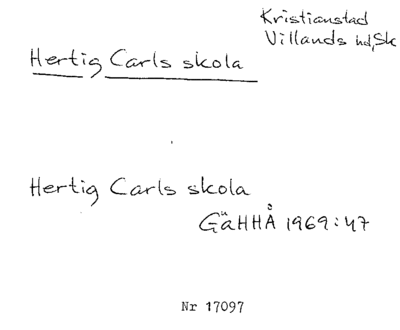 Kristianstad
Villands hd, Sk
Hertig Carls skola
Hertig Carls skola
GäHHÅ 1969:47
Nr 17097